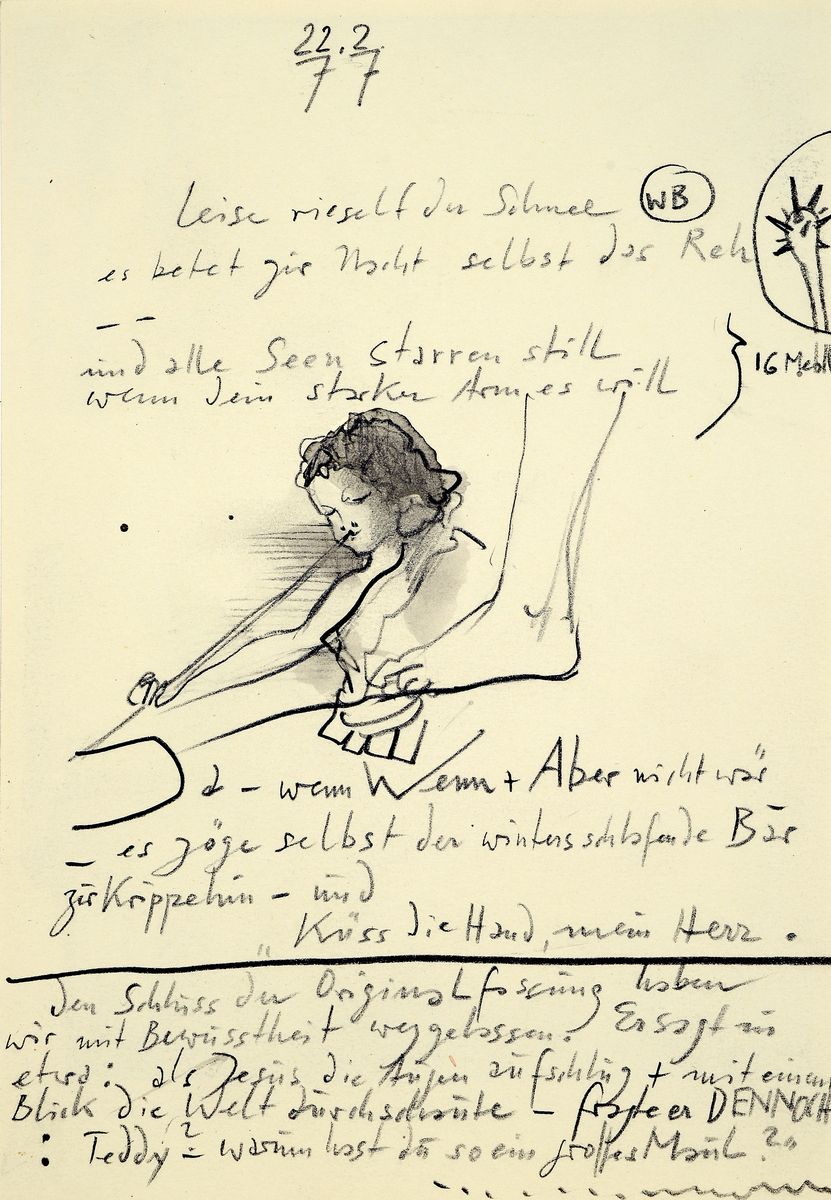 22.2.
77
Leise rieselt der Schnee WB
es betet zur Nacht selbst das Reh
— —
und alle Seen starren still
wenn dein starker Arm es will
16 Metall
a – wenn Wenn + Aber nicht wär
– es zöge selbst der winterschlafende Bär
zur Krippe hin – und
"Küss die Hand, mein Herr.
Den Schluss der Originalfassung haben
wir mit Bewusstheit weggelassen. Er sagt
etwa: als Jesus die Augen aufschlug + mit einem
Blick die Welt durchschaute – fragte er DENNOCH
: Teddy? – warum hast du so ein großes Maul?"